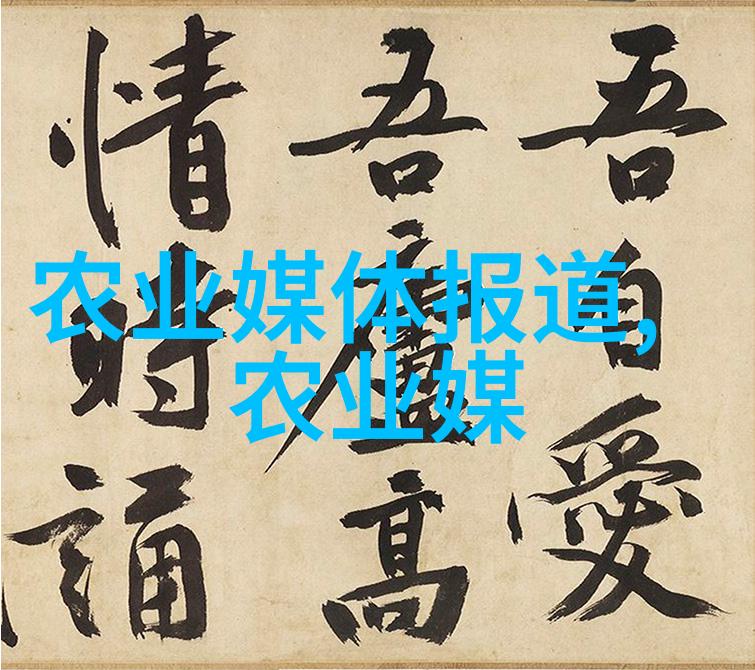 吾自愛
吾廬高
情時誦
农业媒体报道,
农业媒